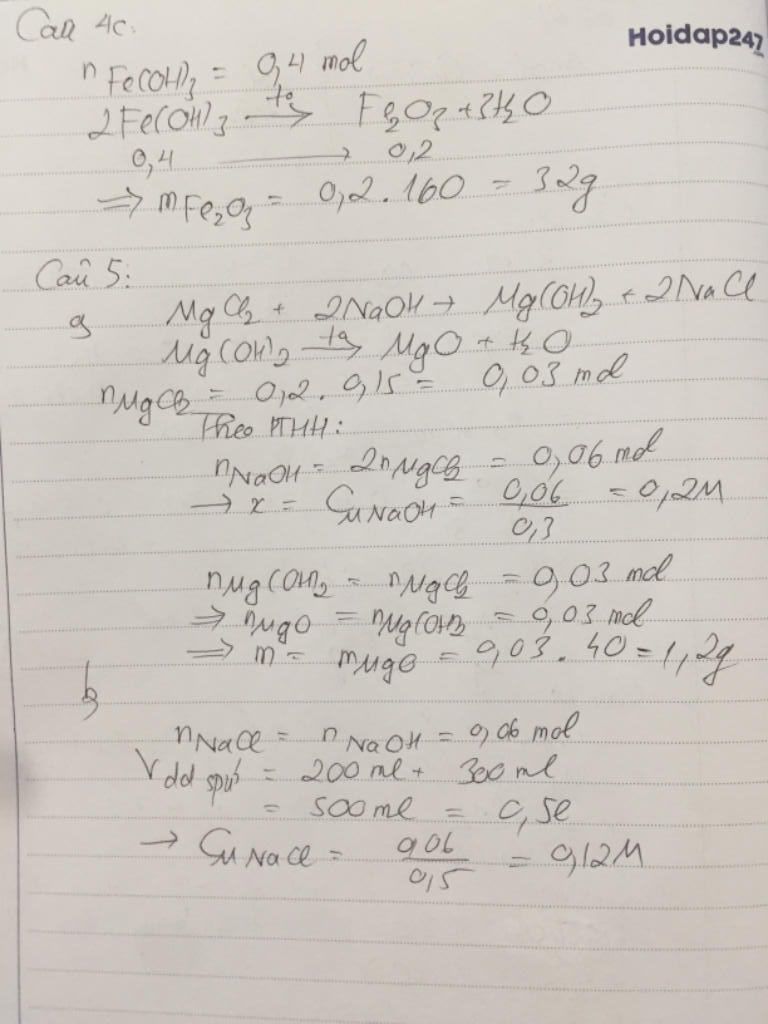 Câu 4c:
Hoidap247
nFe(OH)3 = 0,4 mol
2Fe(OH)3 →(to) Fe2O3 + 3H2O
0,4 → 0,2
⇒ mFe2O3 = 0,2.160 = 32g
Câu 5:
a, MgCl2 + 2NaOH → Mg(OH)2 + 2NaCl
Mg(OH)2 →(to) MgO + H2O
nMgCl2 = 0,2. 0,15 = 0,03 mol
Theo PTHH:
nNaOH = 2nMgCl2 = 0,06 mol
→ x = CM NaOH = 0,06/0,3 = 0,2M
nMg(OH)2 = nMgCl2 = 0,03 mol
⇒ nMgO = nMg(OH)2 = 0,03 mol
⇒ m = mMgO = 0,03. 40 = 1,2g
b,
nNaCl = nNaOH = 0,06 mol
Vdd spứ = 200 ml + 300 ml
= 500 ml = 0,5l
→ CM NaCl = 0,06/0,5 = 0,12M